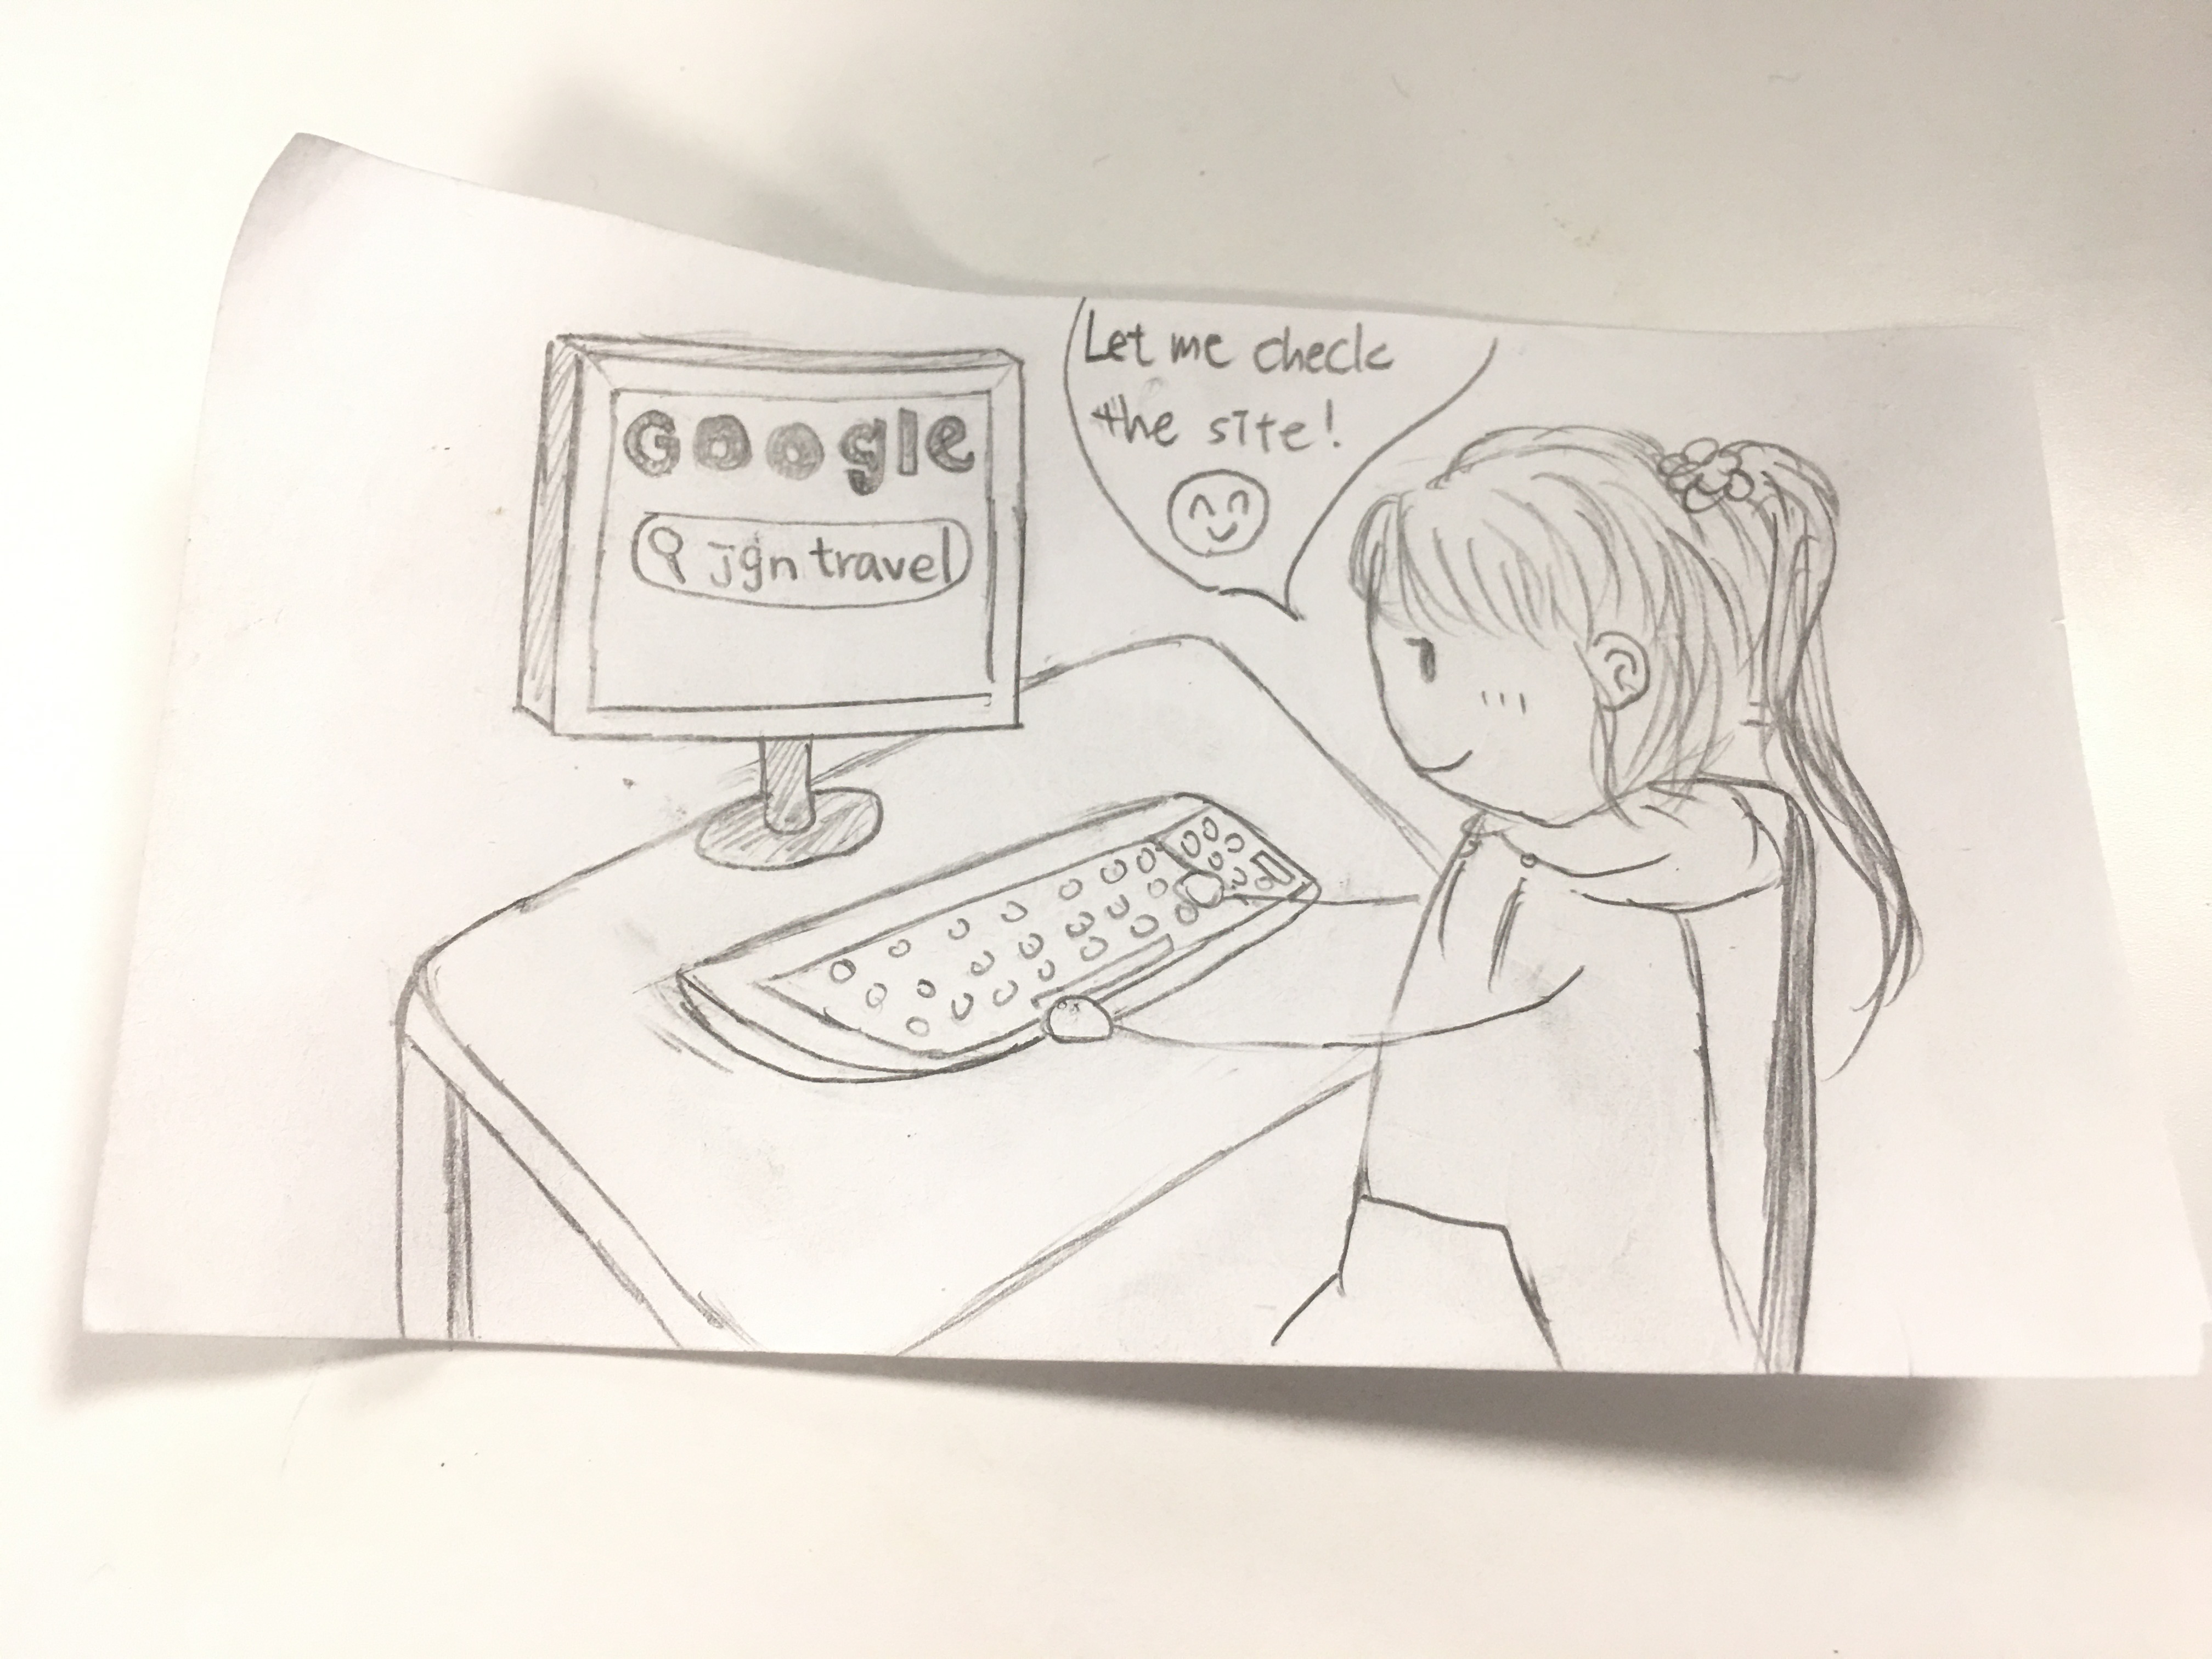 Google
jgn travel
Let me check
the site!